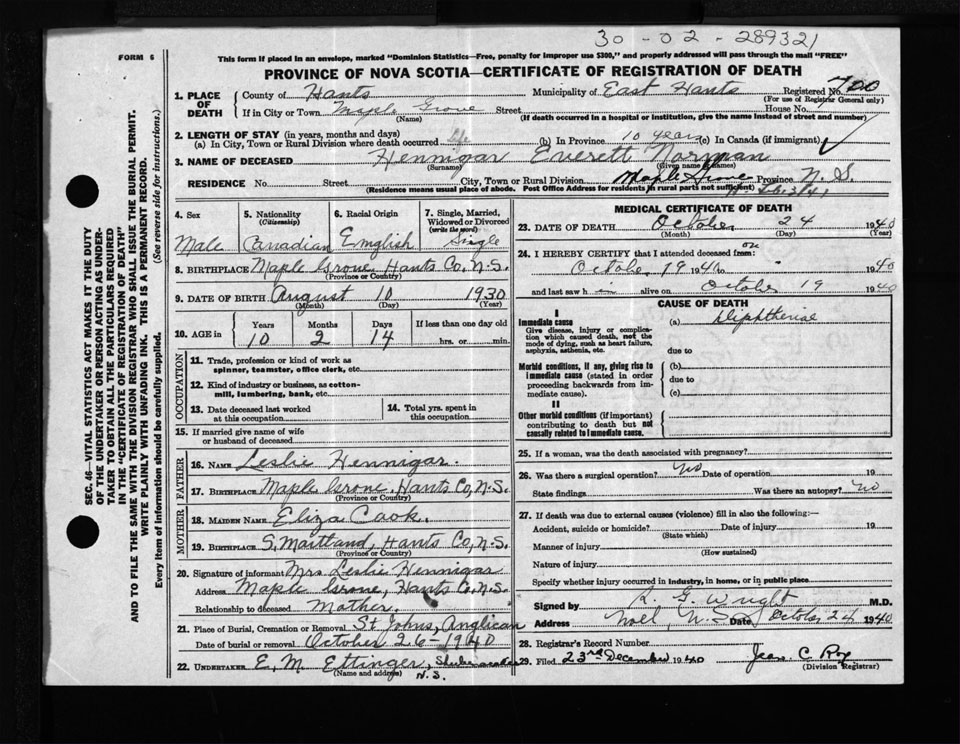 30-02-289321
FORM 6
This form if placed in an envelope, marked "Dominion Statistics—Free, penalty for improper use $300," and properly addressed will pass through the mail "FREE"
PROVINCE OF NOVA SCOTIA—CERTIFICATE OF REGISTRATION OF DEATH
SEC. 46—VITAL STATISTICS ACT MAKES IT THE DUTY
OF THE UNDERTAKER OR PERSON ACTING AS UNDER-
TAKER TO OBTAIN ALL THE PARTICULARS REQUIRED
IN THE "CERTIFICATE OF REGISTRATION OF DEATH"
AND TO FILE THE SAME WITH THE DIVISION REGISTRAR WHO SHALL ISSUE THE BURIAL PERMIT.
WRITE PLAINLY WITH UNFADING INK. THIS IS A PERMANENT RECORD.
Every item of Information should be carefully supplied. (See reverse side for instructions.)
1. PLACE OF DEATH
County of Hants Municipality of East Hants Registered No. 700
(For use of Registrar General only)
If in City or Town Maple Grove Street House No.
(Name) (If death occurred in a hospital or institution, give the name instead of street and number)
2. LENGTH OF STAY (in years, months and days)
(a) In City, Town or Rural Division where death occurred Life (b) in Province 10 years (c) In Canada (if immigrant)
3. NAME OF DECEASED Hennigar Everett Norman
(Surname) (Given names)
RESIDENCE No. Street City, Town or Rural Division Maple Grove Province N. S.
(Residence means usual place of abode. Post Office Address for residents in rural parts not sufficient)
4. Sex Male
5. Nationality (Citizenship) Canadian
6. Racial Origin English
7. Single, Married, Widowed or Divorced (write the word) Single
8. BIRTHPLACE Maple Grove, Hants Co, N.S.
(Province or Country)
9. DATE OF BIRTH August 10 1930
(Month) (Day) (Year)
10. AGE in Years 10 Months 2 Days 14 If less than one day old hrs. or min.
OCCUPATION
11. Trade, profession or kind of work as spinner, teamster, office clerk, etc.
12. Kind of industry or business, as cotton-mill, lumbering, bank, etc.
13. Date deceased last worked at this occupation
14. Total yrs. spent in this occupation
15. If married give name of wife or husband of deceased
FATHER
16. NAME Leslie Hennigar.
17. BIRTHPLACE Maple Grove, Hants Co, N.S.
(Province or Country)
MOTHER
18. MAIDEN NAME Eliza Cook.
19. BIRTHPLACE S. Maitland, Hants Co, N.S.
(Province or Country)
20. Signature of informant Mrs. Leslie Hennigar
Address Maple Grove, Hants Co. N.S.
Relationship to deceased Mother.
21. Place of Burial, Cremation or Removal St Johns, Anglican
Date of burial or removal October 26-1940
22. UNDERTAKER E. M. Ettinger, Shubenacadie
(Name and address) N.S.
MEDICAL CERTIFICATE OF DEATH
23. DATE OF DEATH October 24 1940
(Month) (Day) (Year)
24. I HEREBY CERTIFY that I attended deceased from on
October 19 1940 to 1940
and last saw h im alive on October 19 1940
CAUSE OF DEATH
I
Immediate cause (a) Diphtheriae
Give disease, injury or complication which caused death, not the mode of dying, such as heart failure, asphyxia, asthenia, etc.
due to
Morbid conditions, if any, giving rise to immediate cause (stated in order proceeding backwards from immediate cause).
(b)
due to
(c)
II
Other morbid conditions (if important) contributing to death but not causally related to immediate cause.
25. If a woman, was the death associated with pregnancy?
26. Was there a surgical operation? No Date of operation 19
State findings Was there an autopsy? no
27. If death was due to external causes (violence) fill in also the following:—
Accident, suicide or homicide? Date of injury 19
(State which)
Manner of injury
(How sustained)
Nature of injury
Specify whether injury occurred in industry, in home, or in public place
Signed by R. G. Wright M.D.
Address Noel, N.S. Date October 24 1940
28. Registrar's Record Number
29. Filed 23rd December 1940 Jean C. Roy
(Division Registrar)